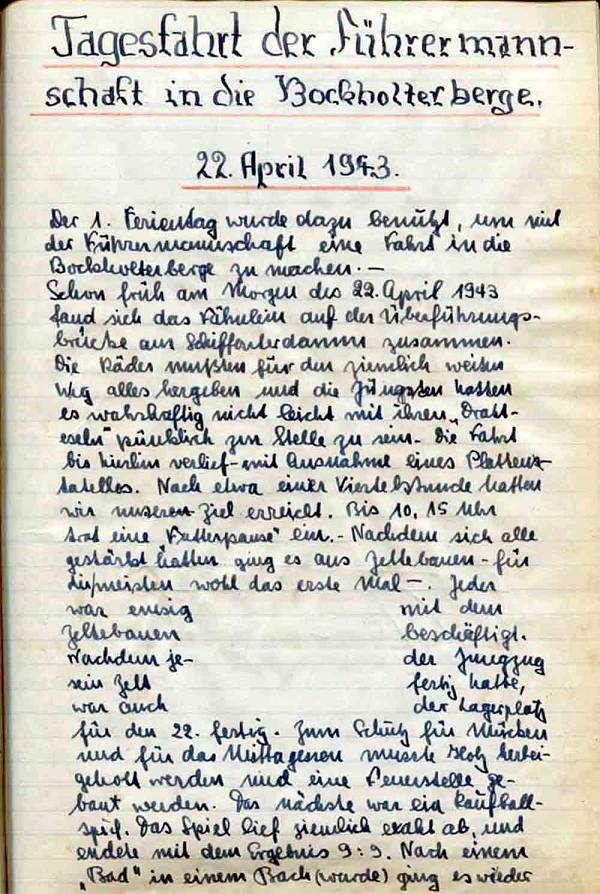 Tagesfahrt der Führermann-
schaft in die Bockholterberge.
22. April 1943.
Der 1. Ferientag wurde dazu benutzt, um mit
der Führermannschaft eine Fahrt in die
Bockholterberge zu machen. —
Schon früh am Morgen des 22. April 1943
fand sich das Fähnlein auf der Überführungs-
brücke am Schifffahrterdamm zusammen.
Die Räder mußten für den ziemlich weiten
Weg alles hergeben und die Jüngsten hatten
es wahrhaftig nicht leicht mit ihren „Draht-
eseln" pünktlich zur Stelle zu sein. Die Fahrt
bis hierhin verlief - mit Ausnahme eines Platten
Nach etwa einer Viertelstunde hatten
wir unseren Ziel erreicht. Bis 10,15 Uhr
trat eine „Futterpause" ein. - Nachdem sich alle
gestärkt hatten ging es ans Zeltebauen - für
die meisten wohl das erste Mal —. Jeder
war emsig mit dem
Zeltebauen beschäftigt.
Nachdem je- der Jungzug
sein Zelt fertig hatte,
war auch der Lagerplatz
für den 22. fertig. Zum Schutz für
und für das Mittagessen musste Holz herbei-
geholt werden und eine Feuerstelle ge-
baut werden. Das nächste war ein Raufball-
spiel. Das Spiel lief ziemlich exakt ab, und
endete mit dem Ergebnis 9:9. Nach einem
„Bad" in einem Bach (wurde) ging es wieder